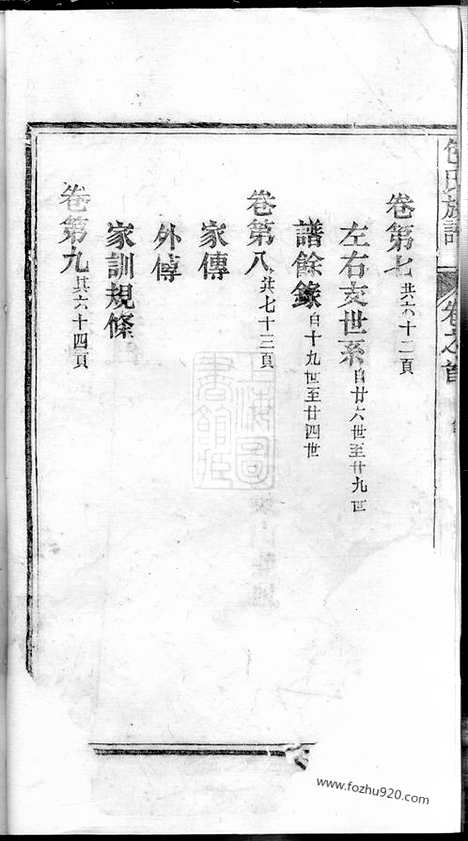 包氏族譜
卷之首
卷第七共六十二頁
左右支世系自廿六世至廿九世
譜餘錄自十九世至廿四世
卷第八共七十三頁
家傳
外傳
家訓規條
卷第九共六十四頁
www.fozhu920.com